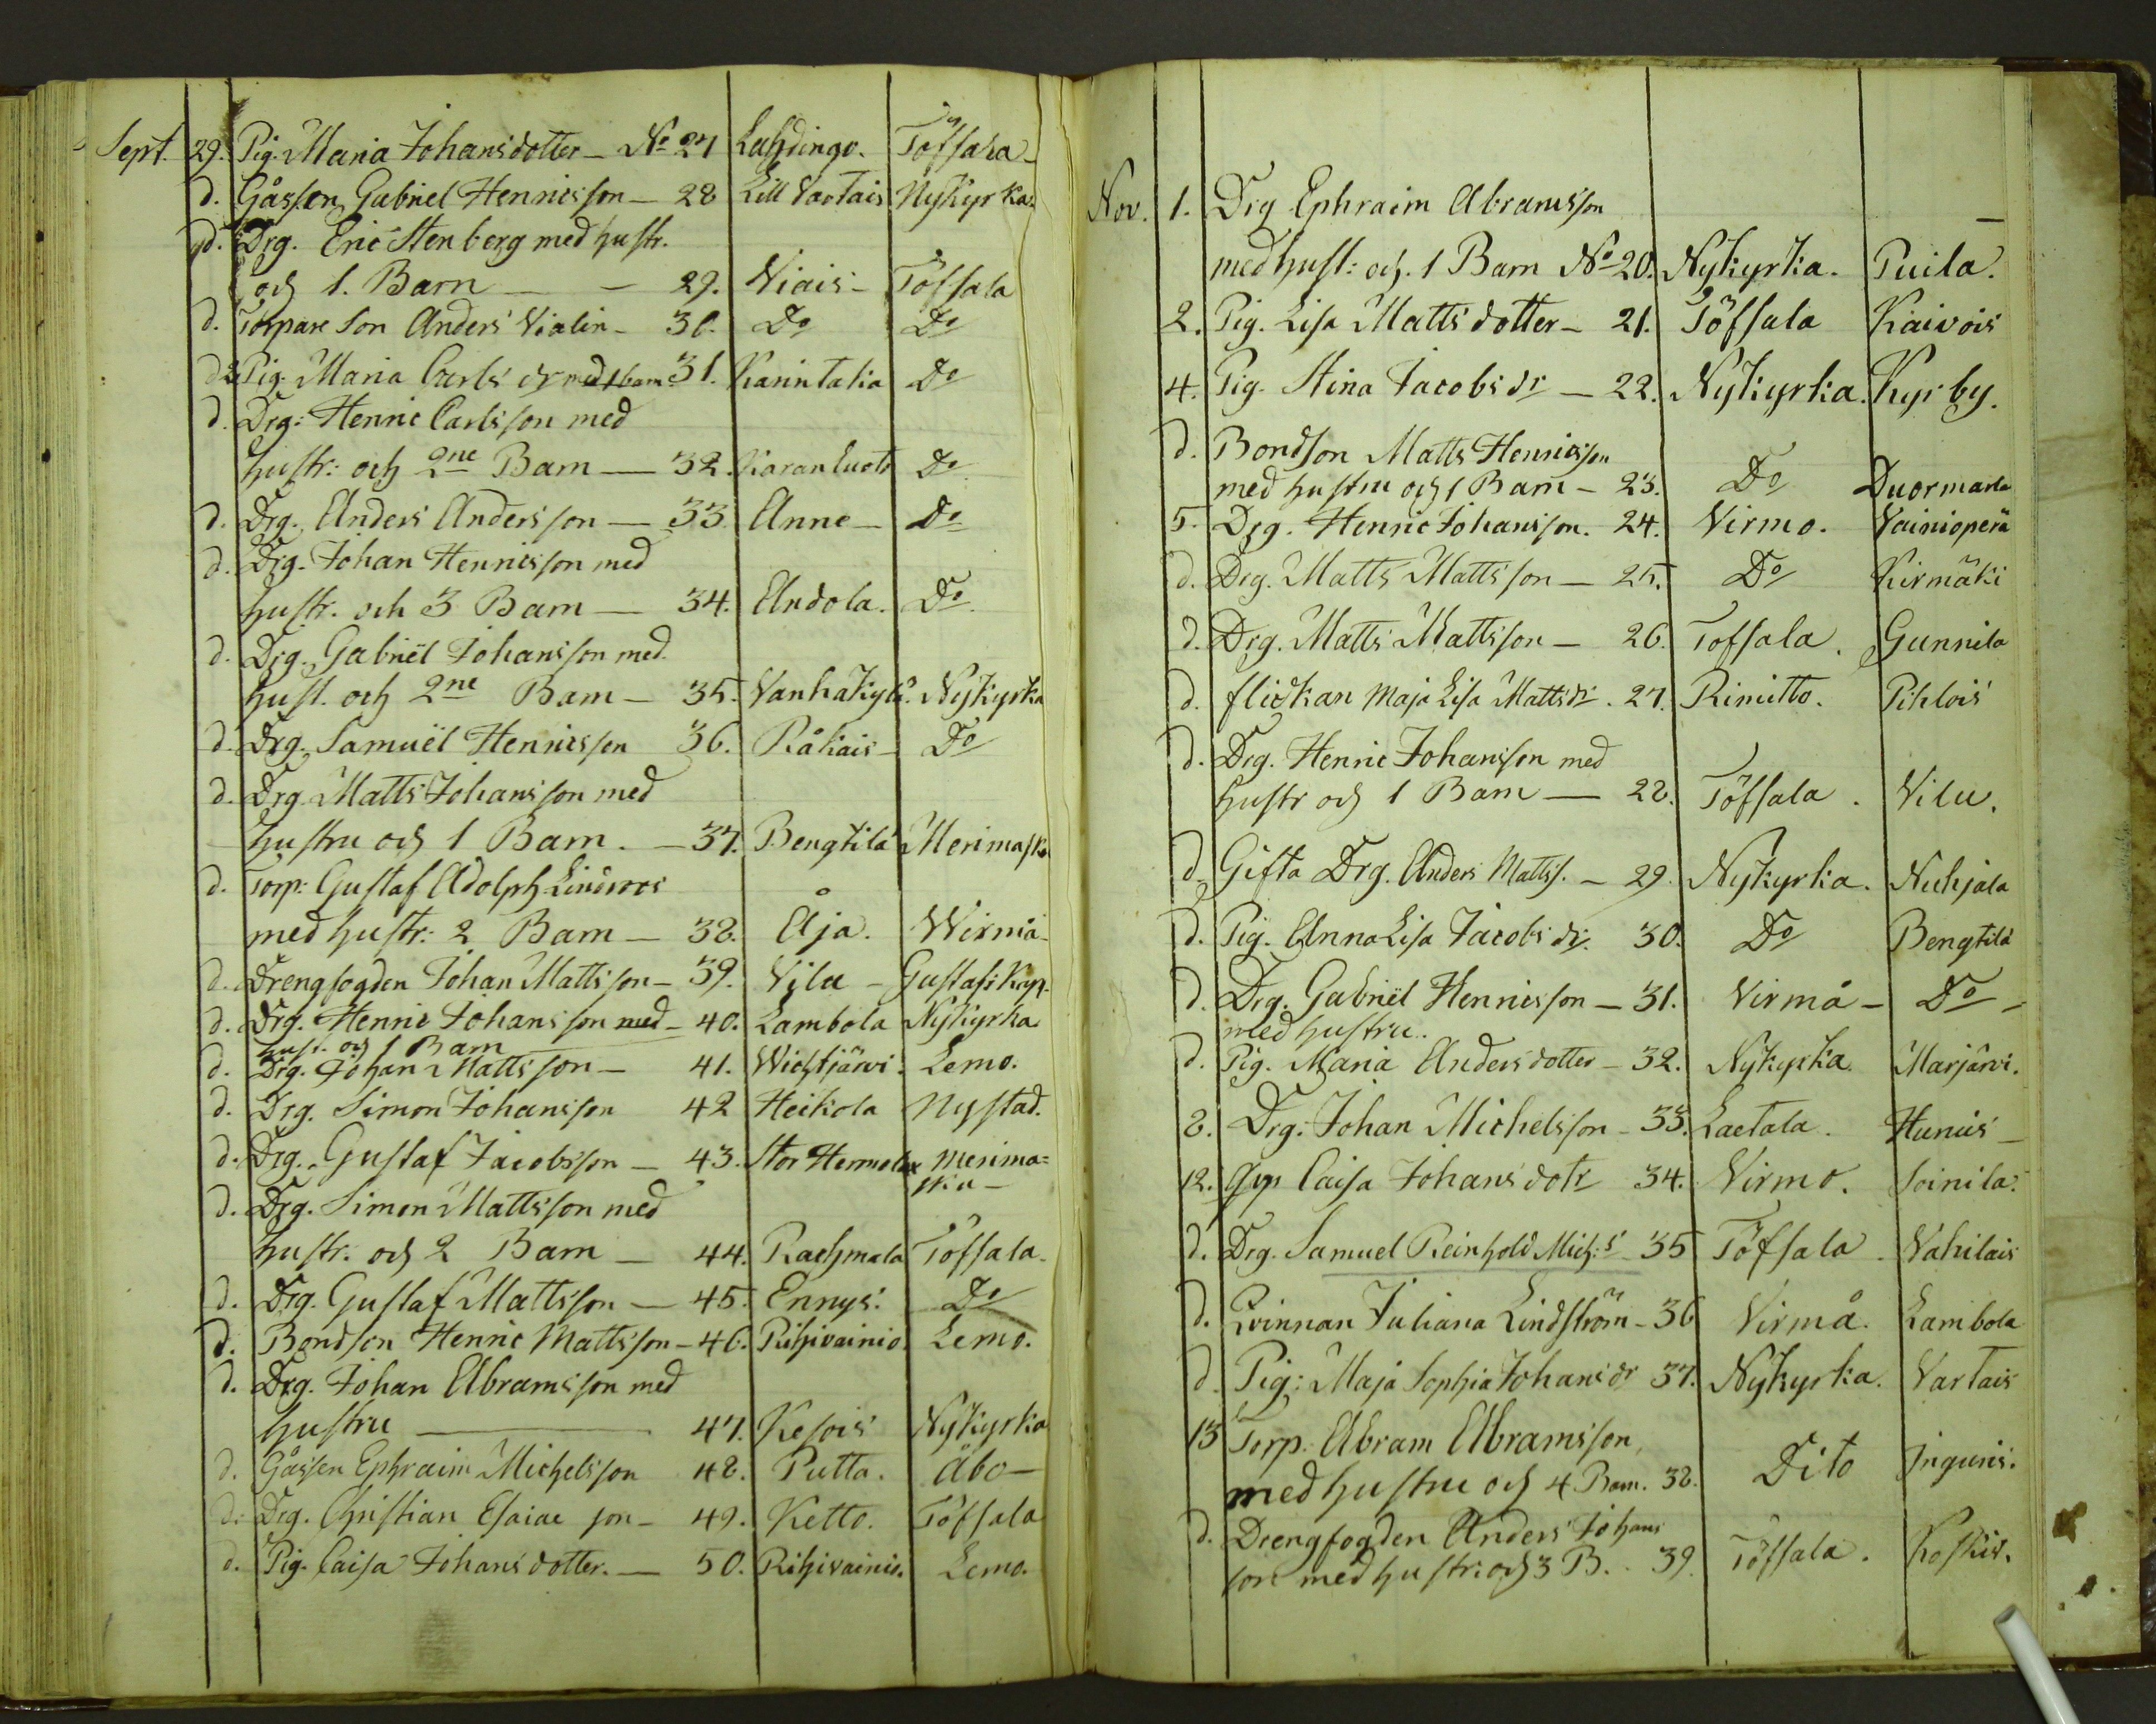 Sept. 29. Pig. Maria Johansdotter - No 27 Lahdingo. Töfsala
d. Gåssen Gabriel Henricsson - 28 Lill Vartais Nykyrka.
d. Drg. Eric Stenberg med hustr.
och 1. Barn - 29. Viais - Töfsala
d. Torpare Son Anders Vialin - 30. Do Do
d. Pig. Maria Carls dr med 1 barn 31. Karintaka Do
d. Drg: Henric Carlsson med
hustr: och 2ne Barn - 32. Karanluoto Do
d. Drg. Anders Andersson - 33. Anne - Do
d. Drg. Johan Henricsson med
hustr. och 3 Barn - 34. Andola. Do
d. Drg. Gabriël Johansson med
hust. och 2ne Barn - 35. Vanhakylä. Nykyrka
d. Drg. Samuël Henricsson 36. Råkais - Do
d. Drg. Matts Johansson med
hustru och 1 Barn. - 37. Bengtilä Merimasku
d. Torp: Gustaf Adolph Lindroos
med hustr: 2 Barn - 38. Åja. Wirmå
d. Drengfogden Johan Mattsson - 39. Vilu - Gustafs Kap.
d. Drg. Henric Johansson med - 40. Lambola Nykyrka
hust. och 1 Barn
d. Drg. Johan Mattsson - 41. Wichtjärvi. Lemo.
d. Drg. Simon Johansson 42 Heikola Nystad.
d. Drg. Gustaf Jacobsson - 43. Stor Hermola Merima=
sku -
d. Drg. Simon Mattsson med
hustr. och 2 Barn - 44. Rachmala Töfsala.
d. Drg. Gustaf Mattsson - 45. Ennys. Do
d. Bondson Henric Mattsson - 46. Rihivainio. Lemo.
d. Drg. Johan Abramsson med
hustru 47. Kesois Nykyrka
d. Gåssen Ephraim Michelsson 48. Putta. Åbo -
d. Drg. Christian Esaiae son - 49. Ketto. Töfsala
d. Pig. Caisa Johansdotter. - 50. Rihivainio. Lemo.
Nov. 1. Drg Ephraim Abramsson
med hust: och. 1 Barn No 20. Nykyrka. Puila.
2. Pig. Lisa Mattsdotter - 21. Töfsala Kaivois
4. Pig. Stina Jacobs dr - 22. Nykyrka. Kyrby.
d. Bondson Matts Henricsson
med hustru och 1 Barn - 23. Do Duormarla
5. Drg. Henric Johansson. 24. Virmo. Vainioperä
d. Drg. Matts Mattsson - 25. Do Kirmäki
d. Drg. Matts Mattsson - 26. Tofsala. Gunnila
d. flickan Maja Lisa Matts dr. 27. Rimitto. Pihlois
d. Drg. Henric Johansson med
hustr och 1 Barn - 28. Töfsala. Vilu.
d. Gifta Drg. Anders Matts. - 29. Nykyrka. Nuhjala
d. Pig. Anna Lisa Jacobs dr. 30. Do Bengtilä
d. Drg. Gabriël Henricsson - 31. Virmå - Do -
med hustru.
d. Pig. Maria Andersdotter - 32. Nykyrka. Marjärvi.
8. Drg: Johan Michelsson - 33. Laetala. Hunnis -
12. Caisa Johans dotr 34. Virmo. Soinila.
d. Drg. Samuel Reinhold Mich:s 35 Töfsala. Vahilais
d. Qvinnan Juliana Lindström - 36 Virmå. Lambola
d. Pig: Maja Sophia Johans dr 37. Nykyrka. Vartais
13 Torp. Abram Abramsson
med hustru och 4 Barn. 38. Dito Ingunis.
d. Drengfogden Anders Johans
son med hustr: och 3 B. 39. Töfsala. Koskis.